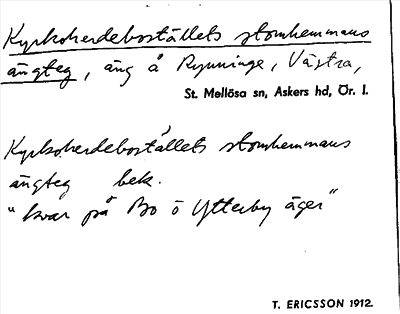 Kyrkoherdeboställets stomhemmans
ängteg, äng å Rynninge, Västra,
St. Mellösa sn, Askers hd, Ör. l.
Kyrkoherdeboställets stomhemmans
ängteg bek.
"kvar på Bo ö Ytterby äger"
T. ERICSSON 1912.